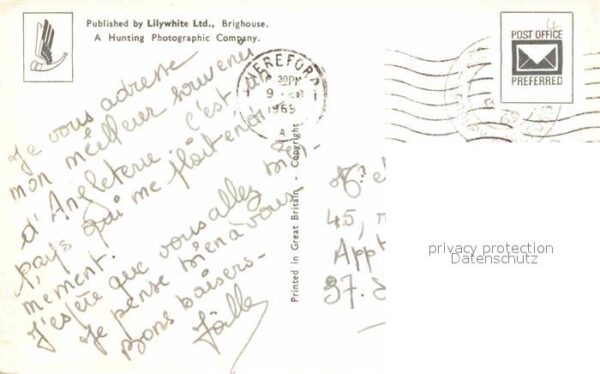 Published by Lilywhite Ltd., Brighouse.
A Hunting Photographic Company.
POST OFFICE
PREFERRED
HEREFORD
30PM
9
1969
A
Je vous adresse
mon meilleur souvenir
d'Angleterre c'est un
pays qui me plaît
mement.
J'espère que vous allez bien
Je pense bien à vous
Bons baisers
Printed in Great Britain - Copyright
45,
37.
privacy protection
Datenschutz